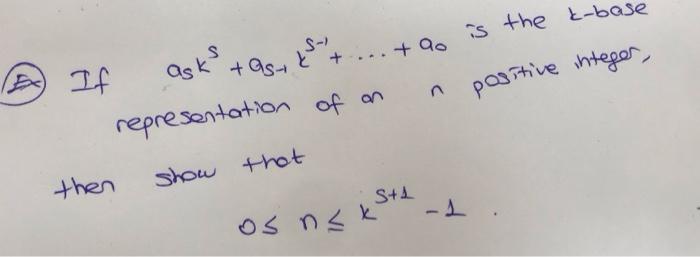 Ex If a_s k^s + a_{s-1} k^{s-1} + ... + a_0 is the k-base
representation of an n positive integer,
then show that
0 ≤ n ≤ k^{s+1} - 1 .